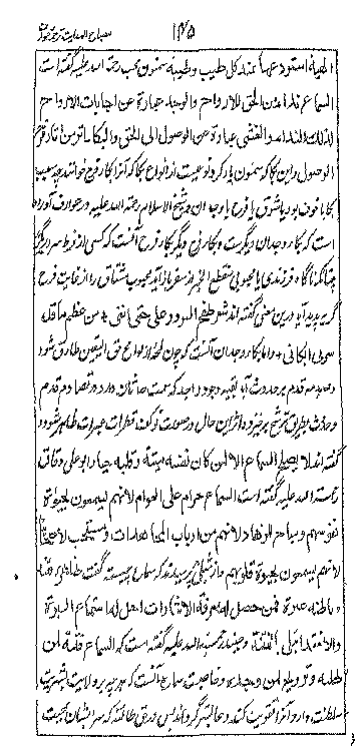 ۱۴۵ مصباح الهدایت ترجمه عوارف
الهیة استودعها عند کل طیب و طیبة سمنون محب رحمة الله علیه گفته است
السماع نداء من الحق للارواح والوجد عبارة عن اجابات الارواح
لذلك النداء والغشی عبارة عن الوصول الی الحق والبکاء اثر من آثار فرح
الوصول و این بکا که سمنون یاد کرد نوعیست از انواع بکا که آنرا بکاء فرح خوانند چه سبب
بکا یا خوف بود یا شوق یا فرح یا وجدان و شیخ الاسلام رحمة الله علیه در عوارف آورده
است که بکاء وجدان دیگرست و بکاء فرح دیگر بکاء فرح آنست که کسی از فرط سرور بگرید
چنانکه ناگاه فرزندی یا محبوبی منقطع الخبر از سفر باز آید محبوب مشتاق را از غایت فرح
گریه پدید آید درین معنی گفته اند شعر طفح السرور علی حتی اننی + من عظم ما قد
سرنی ابکانی + و اما بکاء وجدان آنست که چون لمحه از لوامع حق الیقین طارق شود
و صدمه قدم بر حدوث آید بقیه وجود واجد که سمت حدثان دارد در تصادم قدم
و حدث بطریق ترشح برخیزد و اثر این حال در صورت قطرات عبرات ظاهر شود و
گفته اند لا یصلح السماع الا لمن کان نفسه میتة و قلبه حیا و ابو علی دقاق
رحمة الله علیه گفته است السماع حرام علی العوام لانهم یسمعون بحیوة
نفوسهم و مباح للزهاد لانهم من ارباب المجاهدات و مستحب لاصحابنا
لانهم یسمعون بحیوة قلوبهم و از شبلی پرسیدند که سماع چیست گفت ظاهره فتنة
و باطنه عبرة فمن عرف الاشارة حل له استماع العبرة
والا فقد استدعی الفتنة و جنید رحمة الله علیه گفته است که السماع فتنة لمن
طلبه و ترویح لمن وجده و خاصیت سماع آنست که هرچه بر ولایت بشریت
سلطنت دارد آنرا تقویت کند و غالب گرداند پس در حق طائفه که سر ایشان بمحبت